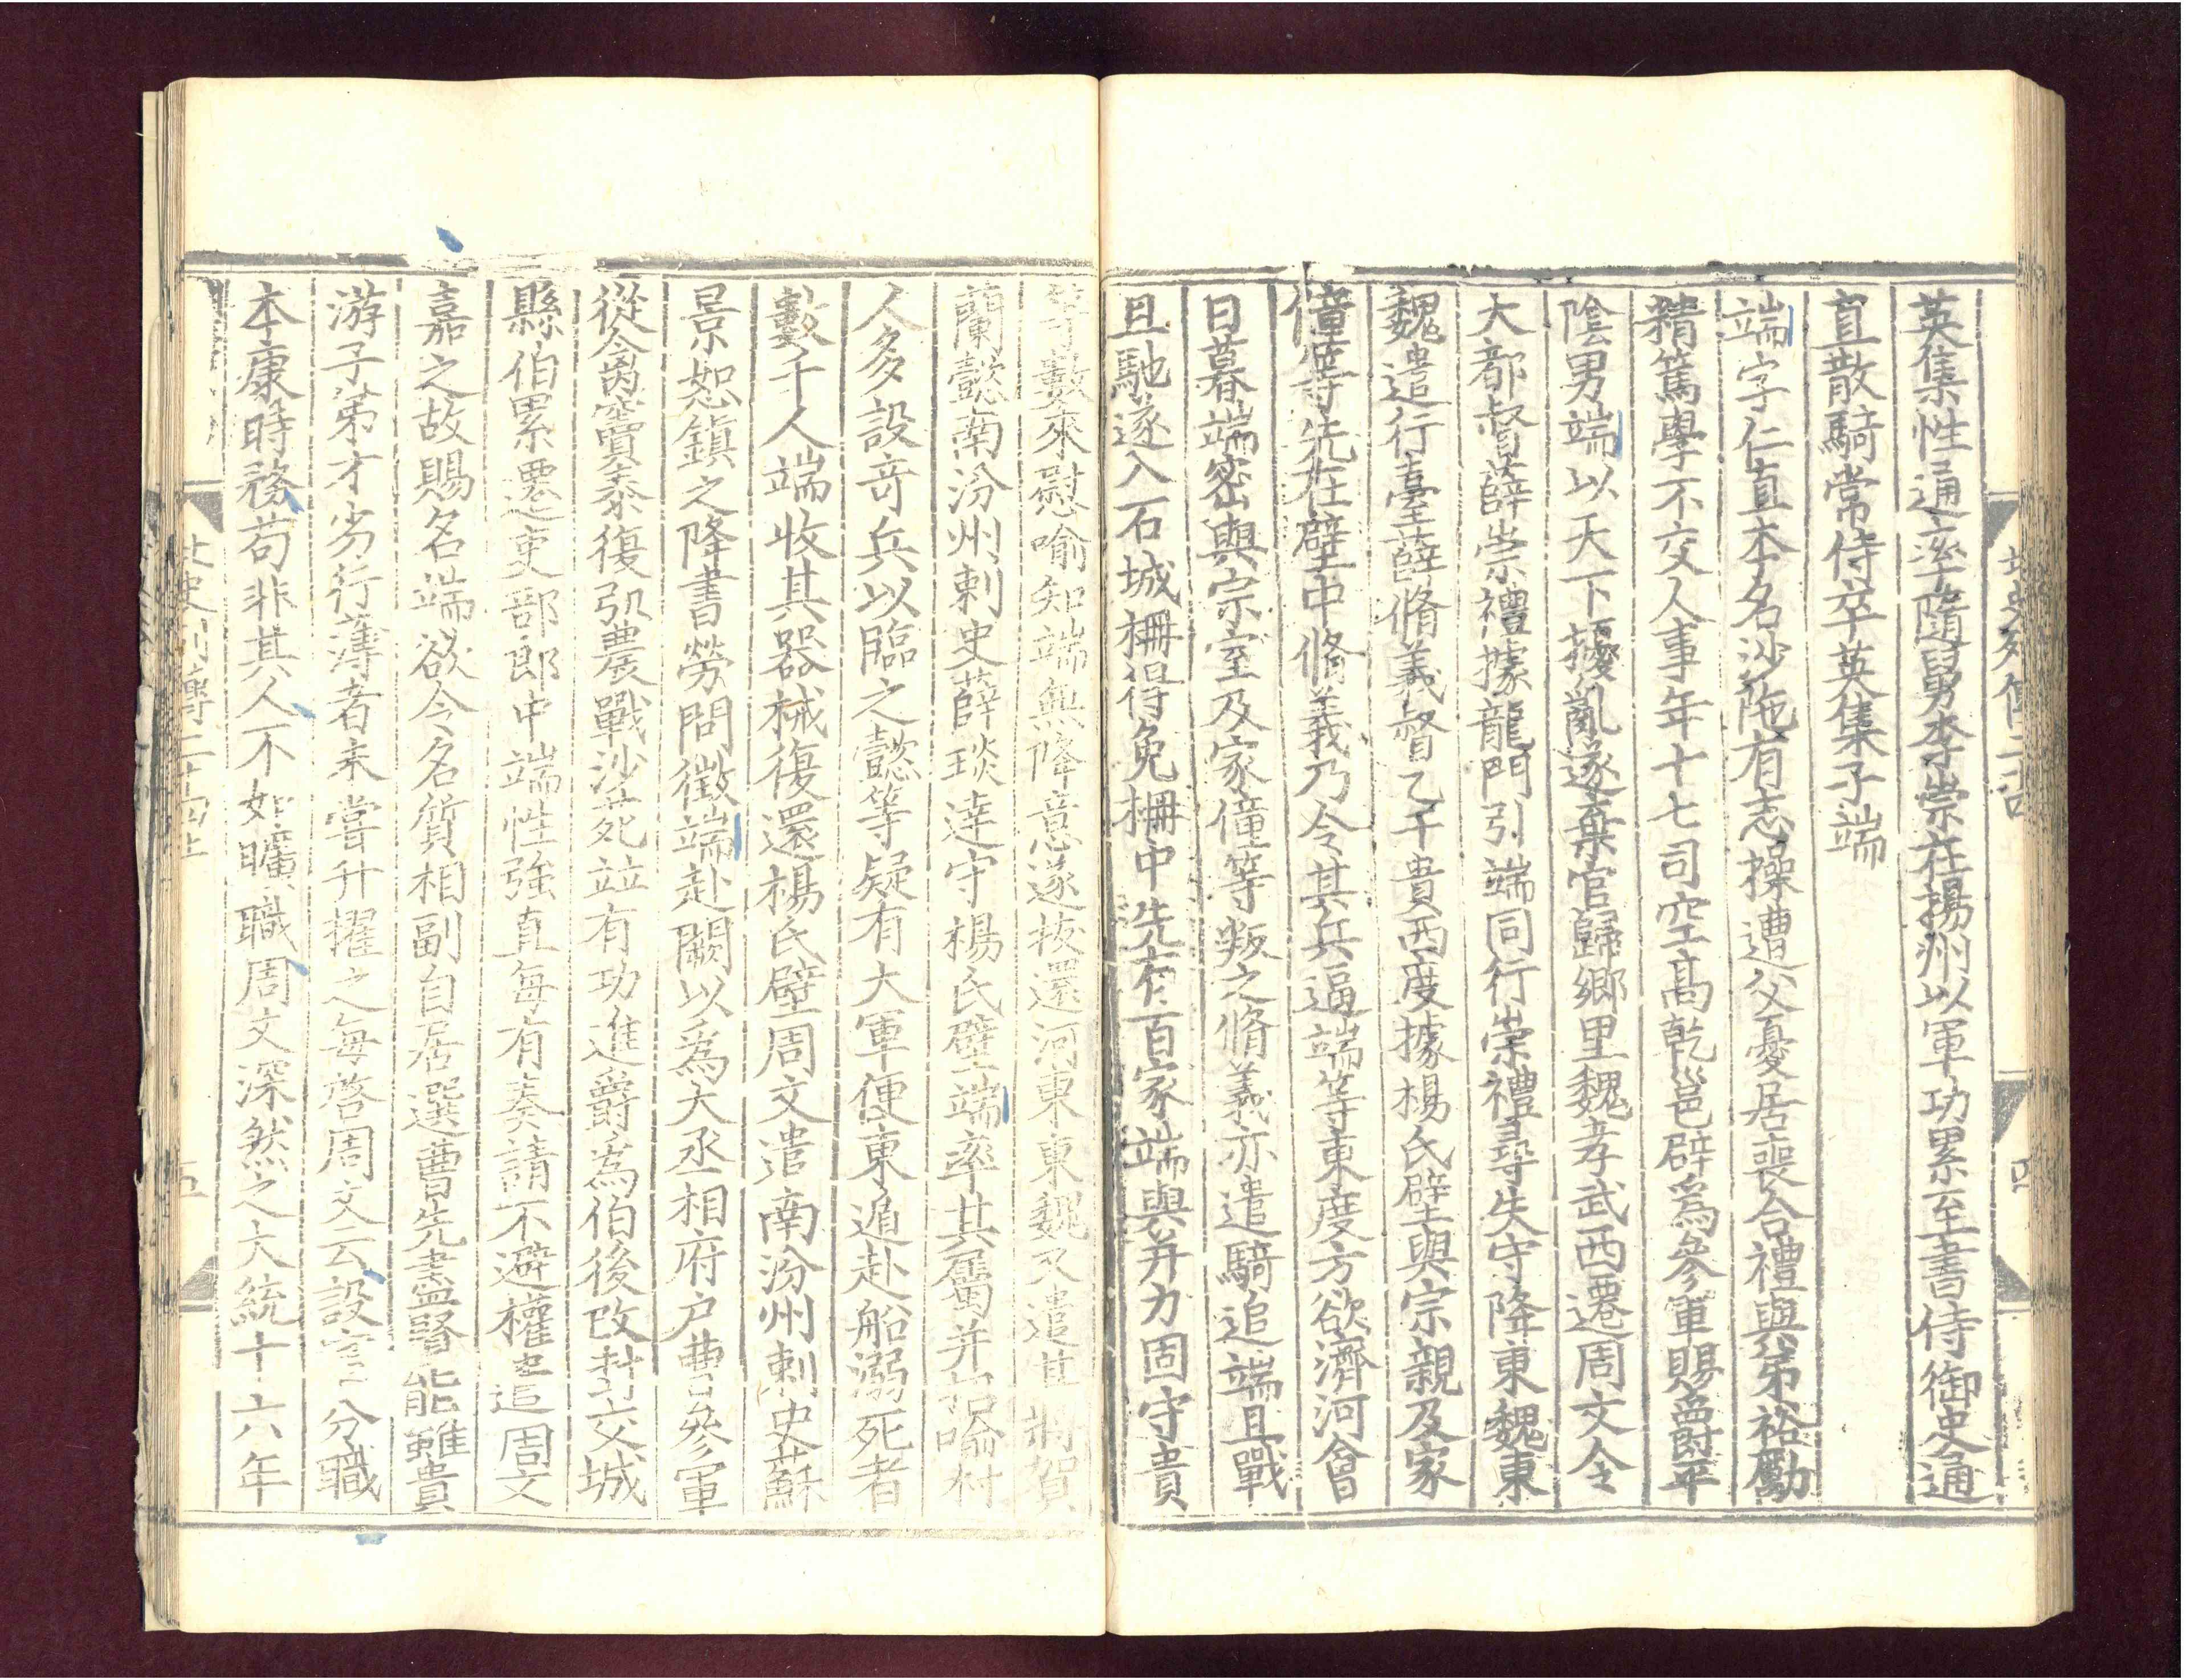 北史列傳二十四 四
英集性通率隨舅李崇在揚州以軍功累至書侍御史通
直散騎常侍卒英集子端
端字仁直本名沙陁有志操遭父憂居喪合禮與弟裕勵
精篤學不交人事年十七司空高乾邕辟爲參軍賜爵平
陰男端以天下擾亂遂棄官歸鄉里魏孝武西遷周文令
大都督薛崇禮據龍門引端同行崇禮尋失守降東魏東
魏遣行臺薛脩義督乙干貴西度據楊氏壁與宗親及家
僮等先在壁中脩義乃令其兵逼端等東度方欲濟河會
日暮端密與宗室及家僮等叛之脩義亦遣騎追端且戰
且馳遂入石城柵得免柵中先有百家端與并力固守貴
等數來慰喻知端無降意遂拔還河東東魏又遣其將賀
蘭懿南汾州剌史薛琰達守楊氏壁端率其屬并招喻村
人多設奇兵以臨之懿等疑有大軍便東遁赴船溺死者
數千人端收其器械復還楊氏壁周文遣南汾州剌史蘇
景恕鎮之降書勞問徵端赴闕以爲大丞相府户曹參軍
從禽竇泰復弘農戰沙苑並有功進爵爲伯後改封交城
縣伯累遷吏部郎中端性強直每有奏請不避權貴周文
嘉之故賜名端欲令名質相副自居選曹先盡賢能雖貴
游子弟才劣行薄者未嘗升擢之每啓周文云設官分職
本康時務苟非其人不如曠職周文深然之大統十六年
北史列傳二十四上 五